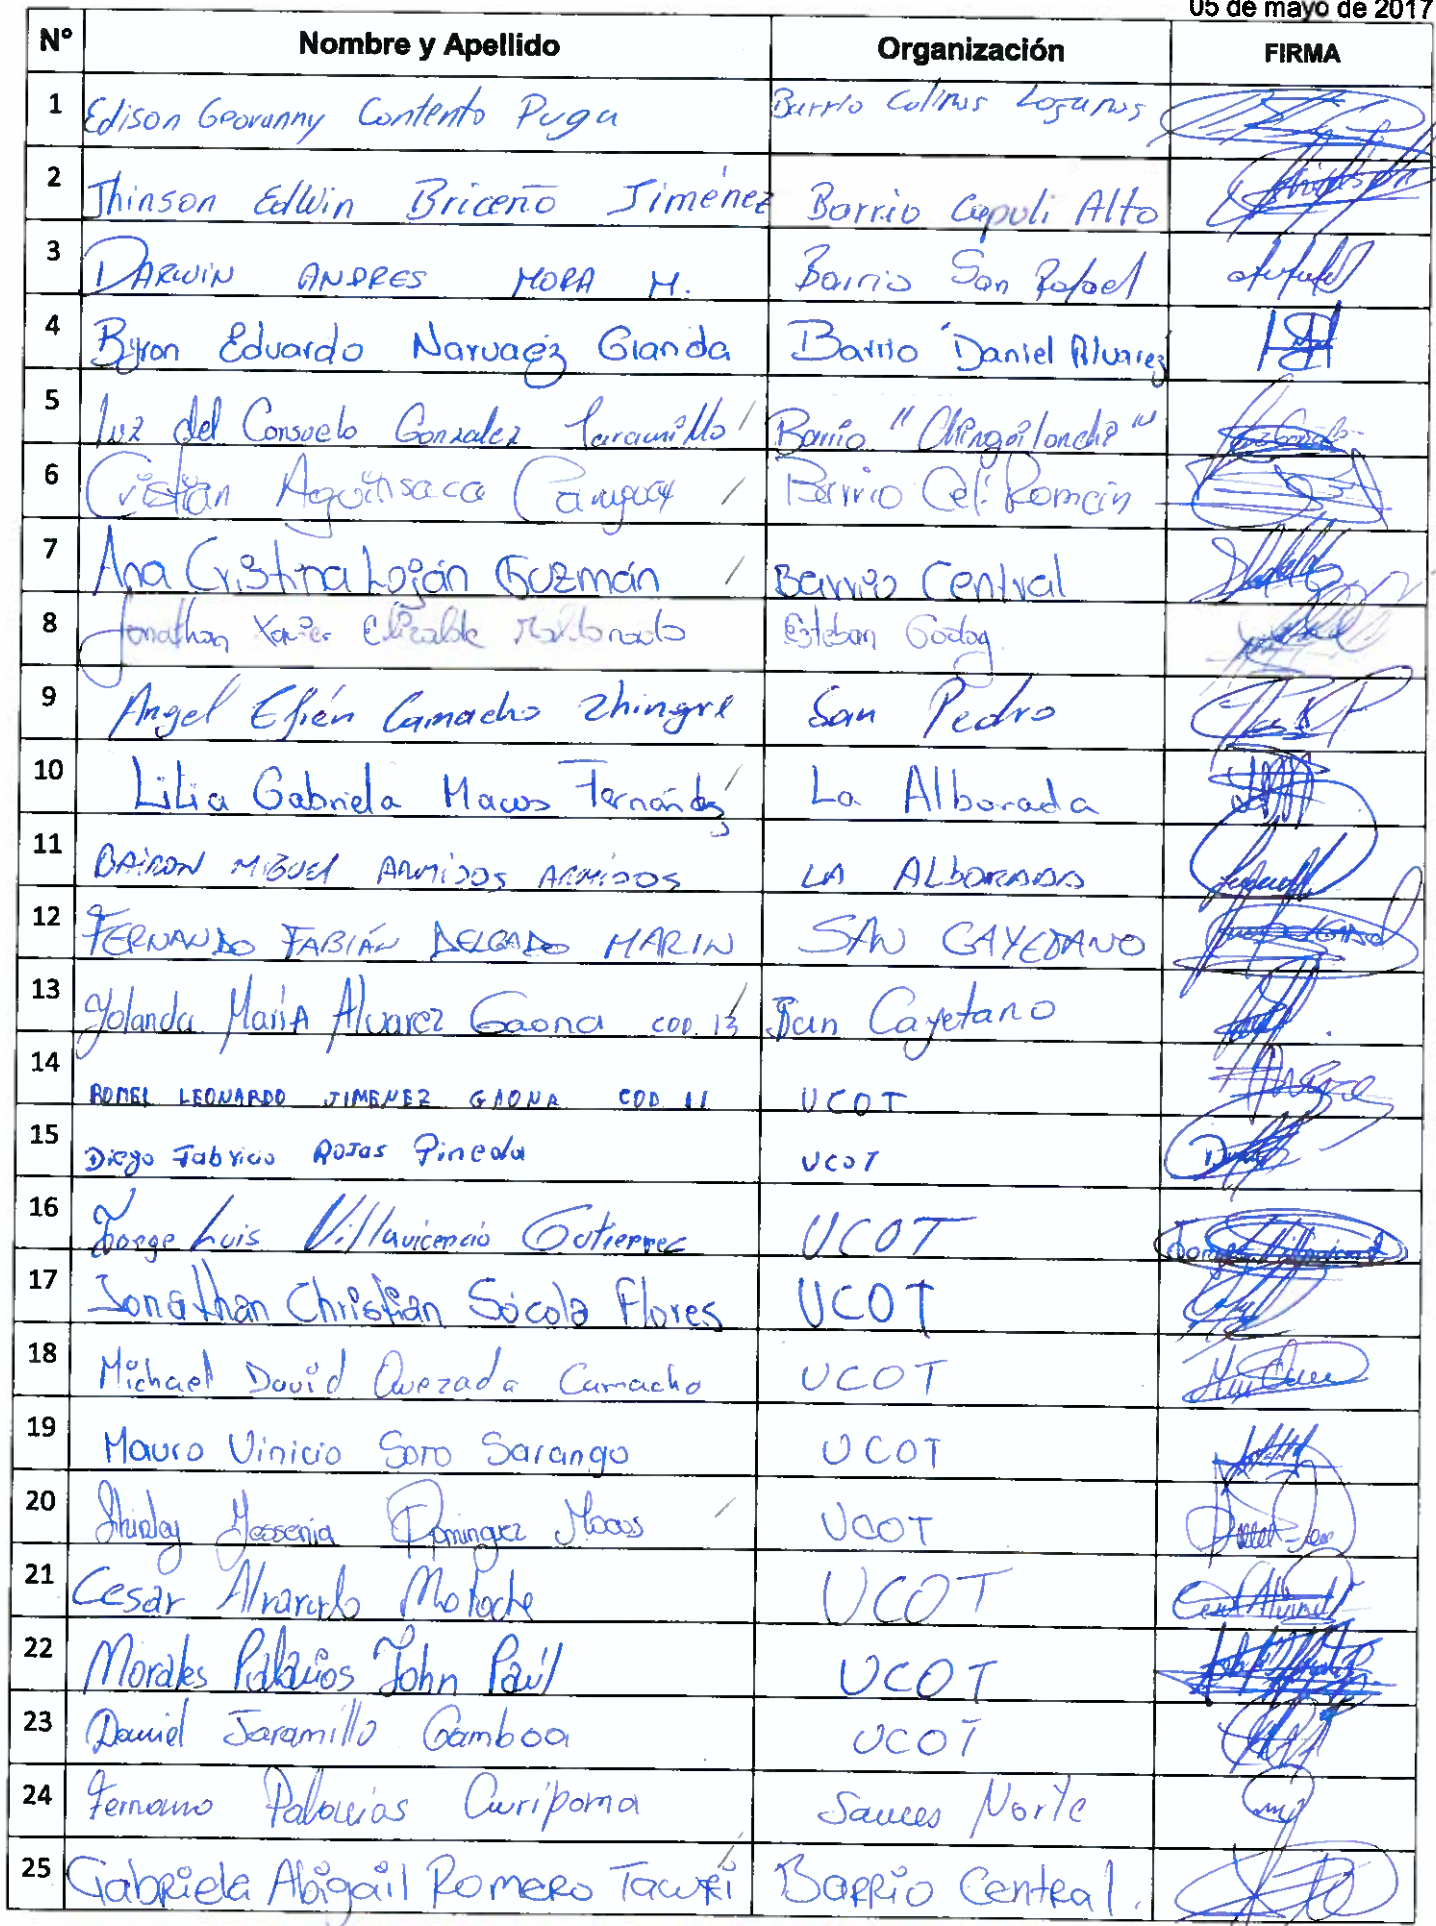 05 de mayo de 2017
N° Nombre y Apellido Organización FIRMA
1 Edison Geovanny Contento Puga Barrio Colinas Lojanas
2 Jhinson Edwin Briceño Jiménez Barrio Capuli Alto
3 DARWIN ANDRES MORA M. Barrio San Rafael
4 Byron Eduardo Narvaez Granda Barrio Daniel Alvarez
5 Luz del Consuelo Gonzalez Jaramillo Barrio "Chinguilanchi"
6 Cristian Aguinsaca Barrio Celi Román
7 Ana Cristina Loján Guzmán Barrio Central
8 Jonathan Xavier Elizalde Maldonado Esteban Godoy
9 Angel Efrén Camacho Zhingre San Pedro
10 Lilia Gabriela Macas Fernández La Alborada
11 BAIRON MIGUEL ARMIJOS ARMIJOS LA ALBORADA
12 FERNANDO FABIÁN DELGADO MARIN SAN CAYETANO
13 Yolanda María Alvarez Gaona COD. 13 San Cayetano
14 ROMEL LEONARDO JIMENEZ GAONA COD 11 UCOT
15 Diego Fabricio Rojas Pineda UCOT
16 Jorge Luis Villavicencio Gutierrez UCOT
17 Jonathan Christian Sócola Flores UCOT
18 Michael David Quezada Camacho UCOT
19 Mauro Vinicio Soto Sarango UCOT
20 Shirley Yessenia Dominguez Macas UCOT
21 Cesar Alvarado Motoche UCOT
22 Morales Palacios John Paúl UCOT
23 Daniel Jaramillo Gamboa UCOT
24 Palacios Curipoma Sauces Norte
25 Gabriela Abigail Romero Tacuri Barrio Central.